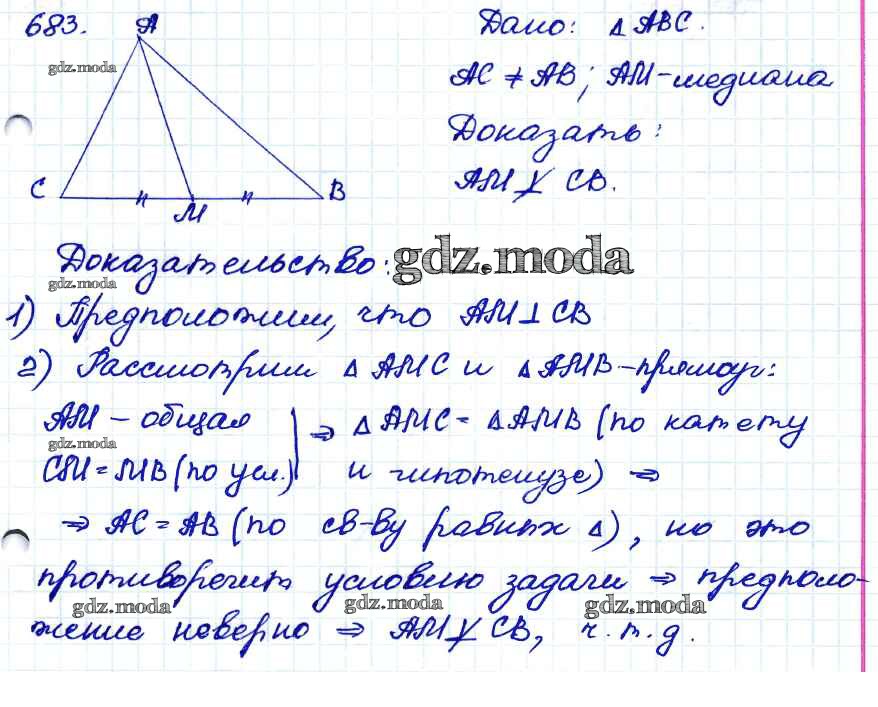 683.
A
Дано: △ ABC.
gdz.moda
AC ≠ AB; AM-медиана
Доказать:
C
B
M
AM ⊥̸ CB.
Доказательство:
gdz.moda
gdz.moda
1) Предположим, что AM ⊥ CB
2) Рассмотрим △ AMC и △ AMB-прямоуг:
AM - общая
gdz.moda
⇒ △ AMC = △ AMB (по катету
CM = MB (по усл.)
и гипотенузе) ⇒
⇒ AC = AB (по св-ву равных △), но это
противоречит условию задачи ⇒ предполо-
gdz.moda gdz.moda gdz.moda
жение неверно ⇒ AM ⊥̸ CB, ч.т.д.